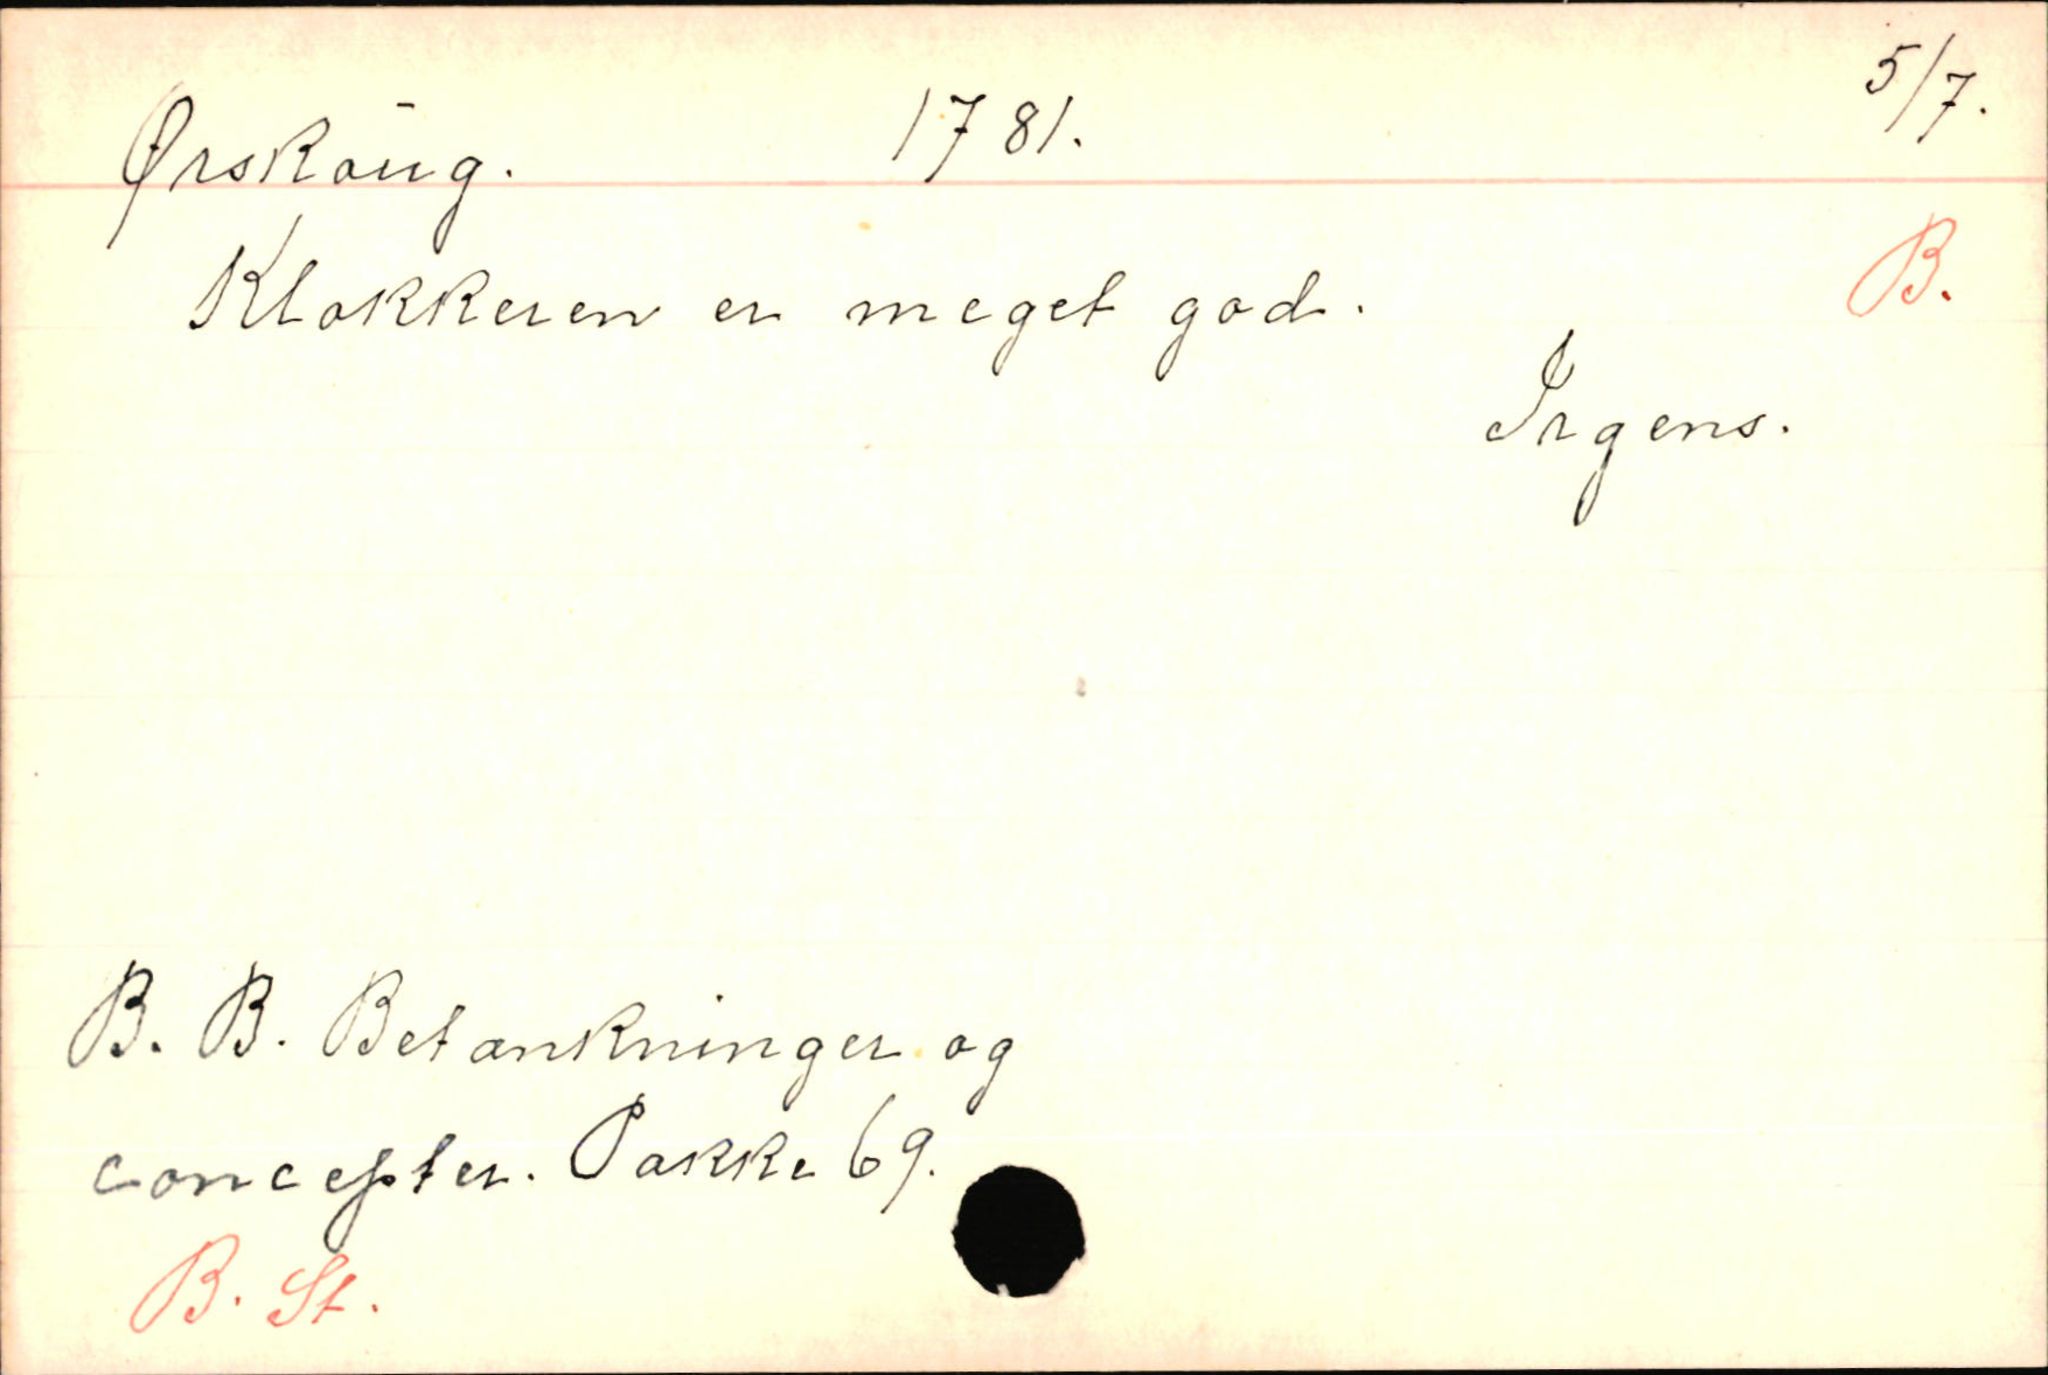 Ørskōug. 1781. 5/7.
B.
Klokkeren er meget god.
Irgens.
B. B. Betænkninger og
concepter. Pakke 69.
B. St.